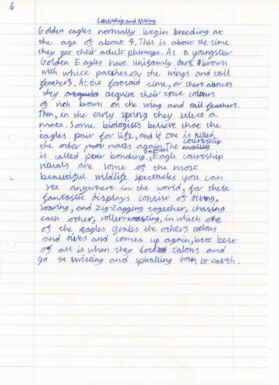 6
Courtship and Mating
Golden eagles normally begin breeding at
the age of about 4. This is about the time
they get their adult plumage. As a youngster
Golden Eagles have uniformly dark brown
with white patches on the wings and tail
feathers. At the
time, or there abouts
they acquire their true colours
of rich brown on the wing and tail feathers.
Then, in the early spring they select a
mate. Some biologists believe that the
eagles pair for life, and if one is killed,
the other mates again. The courtship
is called pair bonding. Eagle courtship
rituals are some of the most
beautiful wildlife spectacles you can
see anywhere in the world, for these
fantastic displays consist of diving,
soaring, and zig-zagging together, chasing
each other, roller-coasting, in which one
of the eagles grabs the other's talons
and dives and comes up again, but best
of all is when they lock talons and
go twisting and spiralling down to earth.